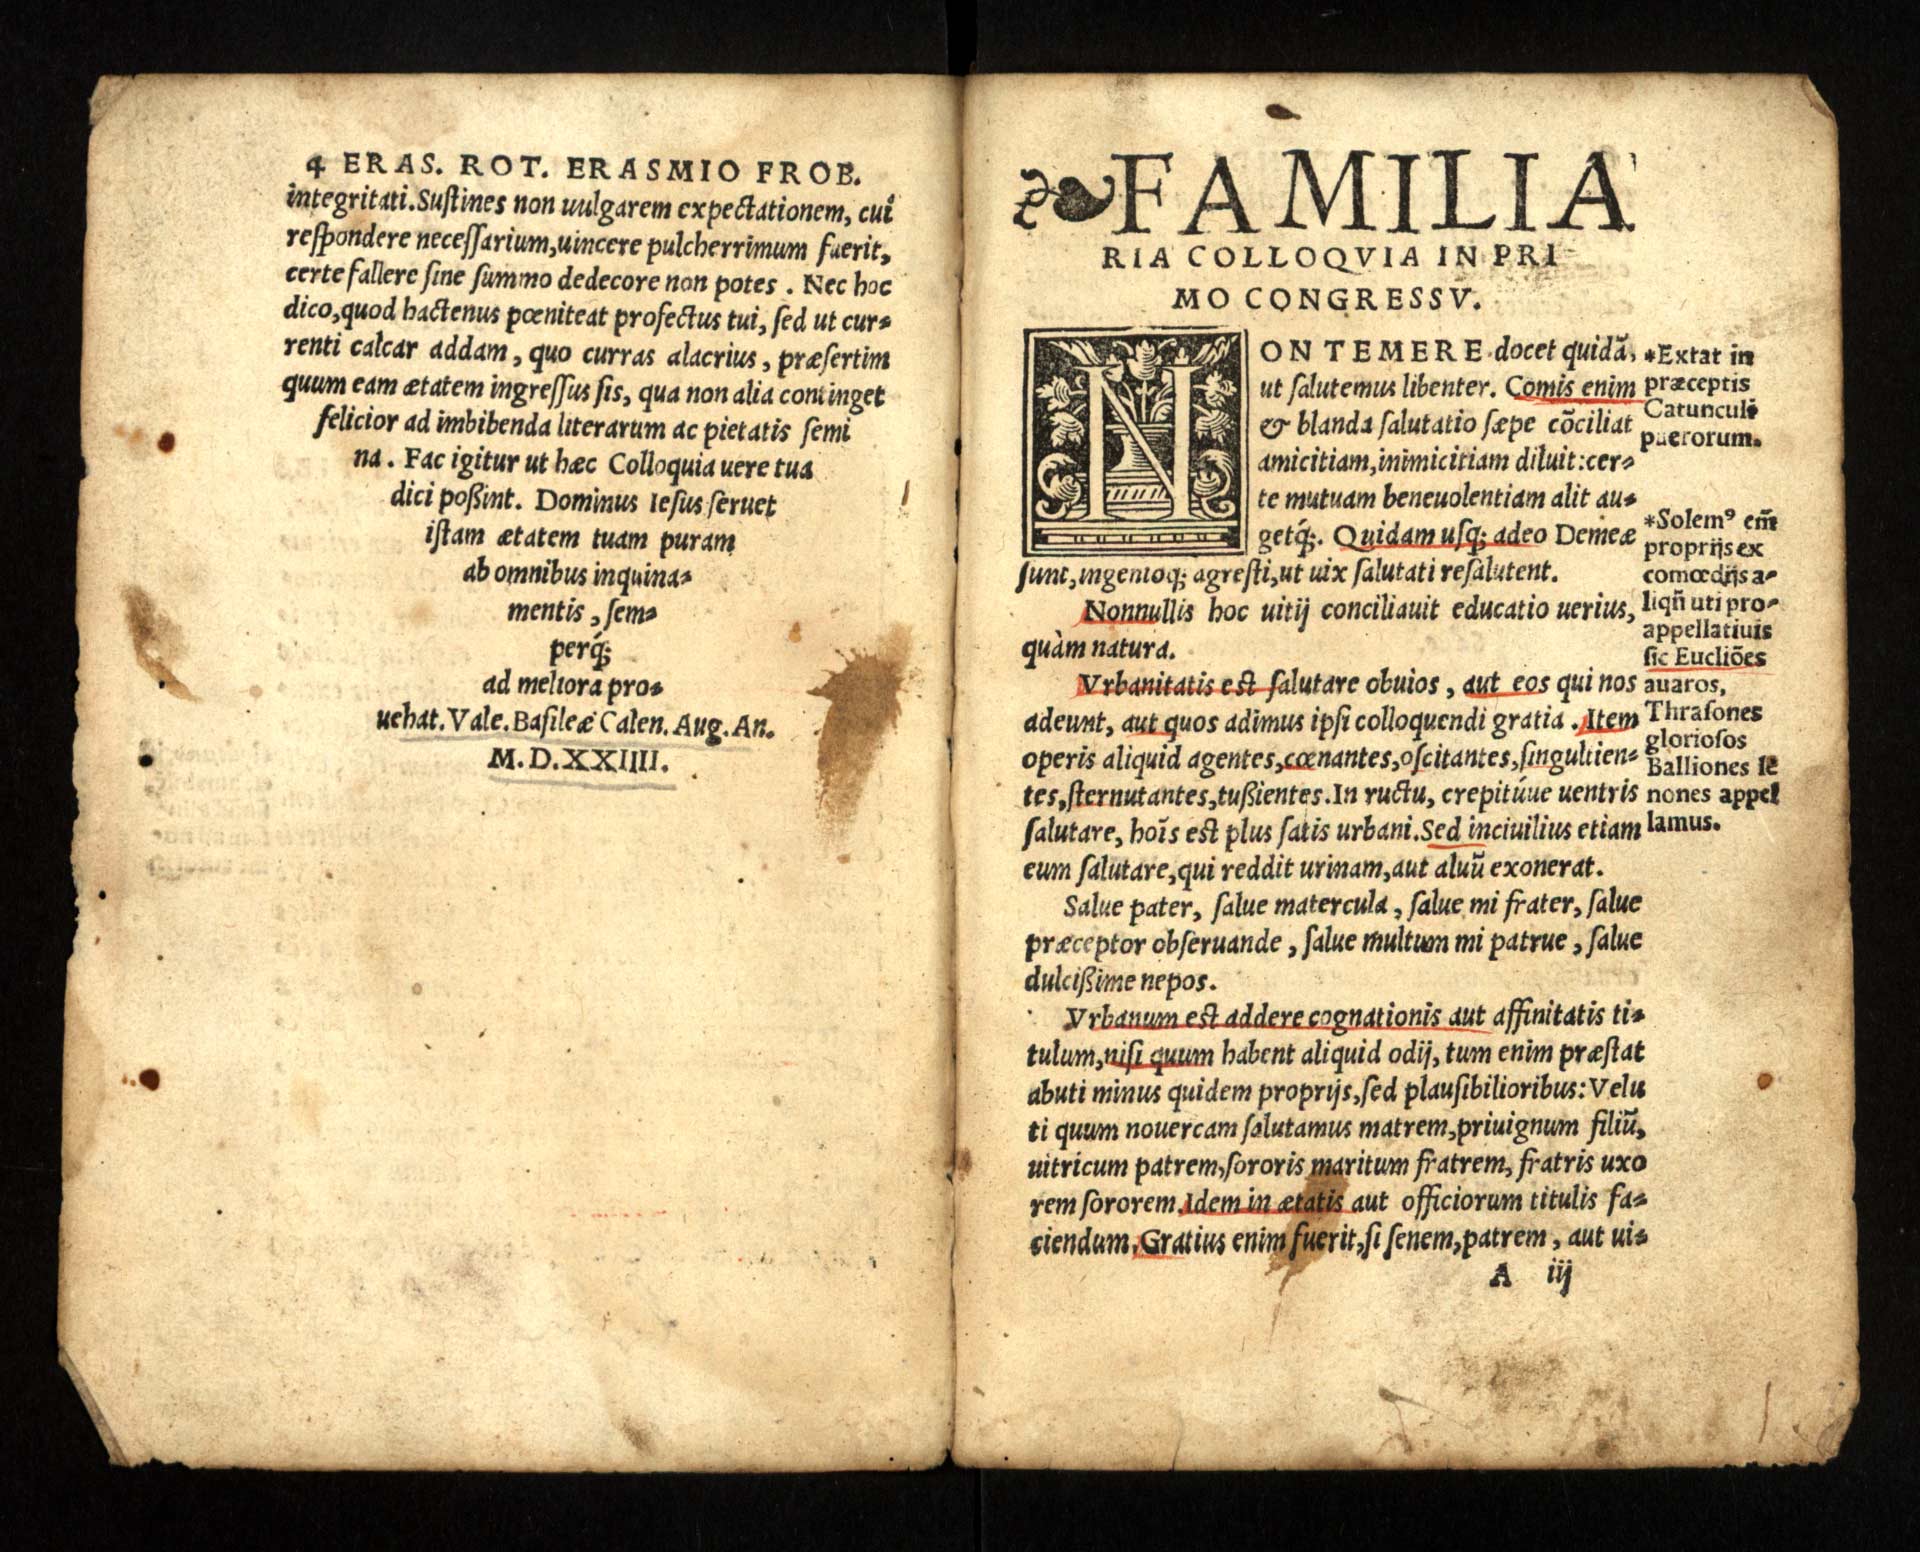 4 ERAS. ROT. ERASMIO FROB.
integritati. Suſtines non uulgarem expectationem, cui
reſpondere neceſſarium, uincere pulcherrimum fuerit,
certe fallere ſine ſummo dedecore non potes. Nec hoc
dico, quod hactenus pœniteat profectus tui, ſed ut cur⸗
renti calcar addam, quo curras alacrius, præſertim
quum eam ætatem ingreſſus ſis, qua non alia continget
felicior ad imbibenda literarum ac pietatis ſemi
na. Fac igitur ut hæc Colloquia uere tua
dici poßint. Dominus Ieſus ſeruet
iſtam ætatem tuam puram
ab omnibus inquina⸗
mentis, ſem⸗
perq́;
ad meliora pro⸗
uehat. Vale. Baſileæ Calen. Aug. An.
M. D. XXIIII.
❧ FAMILIA
RIA COLLOQVIA IN PRI
MO CONGRESSV.
NON TEMERE docet quidã,
ut ſalutemus libenter. Comis enim
& blanda ſalutatio ſæpe cõciliat
amicitiam, inimicitiam diluit: cer⸗
te mutuam beneuolentiam alit au⸗
getq́;. Quidam uſq; adeo Demeæ
ſunt, ingenioq; agreſti, ut uix ſalutati reſalutent.
Nonnullis hoc uitij conciliauit educatio uerius,
quàm natura.
Vrbanitatis est ſalutare obuios, aut eos qui nos
adeunt, aut quos adimus ipſi colloquendi gratia. Item
operis aliquid agentes, cœnantes, oſcitantes, ſingultien⸗
tes, ſternutantes, tußientes. In ructu, crepitúue uentris
ſalutare, hoĩs est plus ſatis urbani. Sed inciuilius etiam
eum ſalutare, qui reddit urinam, aut aluũ exonerat.
Salue pater, ſalue matercula, ſalue mi frater, ſalue
præceptor obſeruande, ſalue multum mi patrue, ſalue
dulcißime nepos.
Vrbanum est addere cognationis aut affinitatis ti⸗
tulum, niſi quum habent aliquid odij, tum enim præſtat
abuti minus quidem proprijs, ſed plauſibilioribus: Velu
ti quum nouercam ſalutamus matrem, priuignum filiũ,
uitricum patrem, ſororis maritum fratrem, fratris uxo
rem ſororem. Idem in ætatis aut officiorum titulis fa⸗
ciendum. Gratius enim fuerit, ſi ſenem, patrem, aut ui⸗
A iij
*Extat in
præceptis
Catunculi
puerorum.
*Solemꝰ em̃
proprijs ex
comœdijs a⸗
liqñ uti pro⸗
appellatiuis
ſic Eucliões
auaros,
Thraſones
glorioſos
Balliones le
nones appel
lamus.